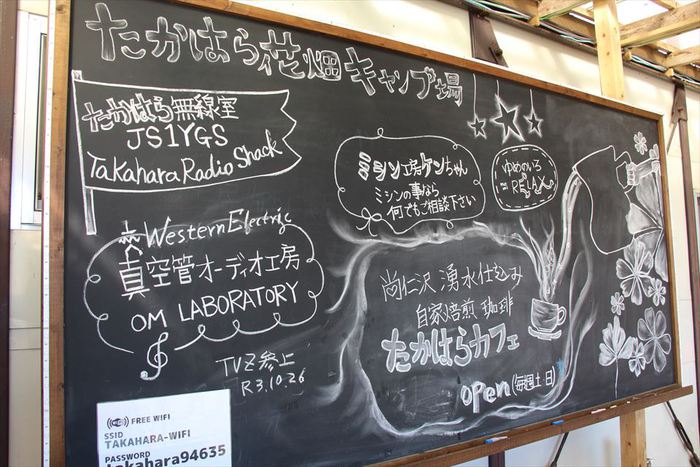 たかはら花畑キャンプ場
たかはら無線室
JS1YGS
Takahara Radio Shack
ミシン工房ケンちゃん
ミシンの事なら
何でもご相談下さい
ゆめのいろ
RELAX
Western Electric
真空管オーディオ工房
OM LABORATORY
TVZ参上
R3.10.26
尚仁沢 湧水仕込み
自家焙煎 珈琲
たかはらカフェ
open(毎週土日)
FREE WIFI
SSID
TAKAHARA-WIFI
PASSWORD
takahara94635